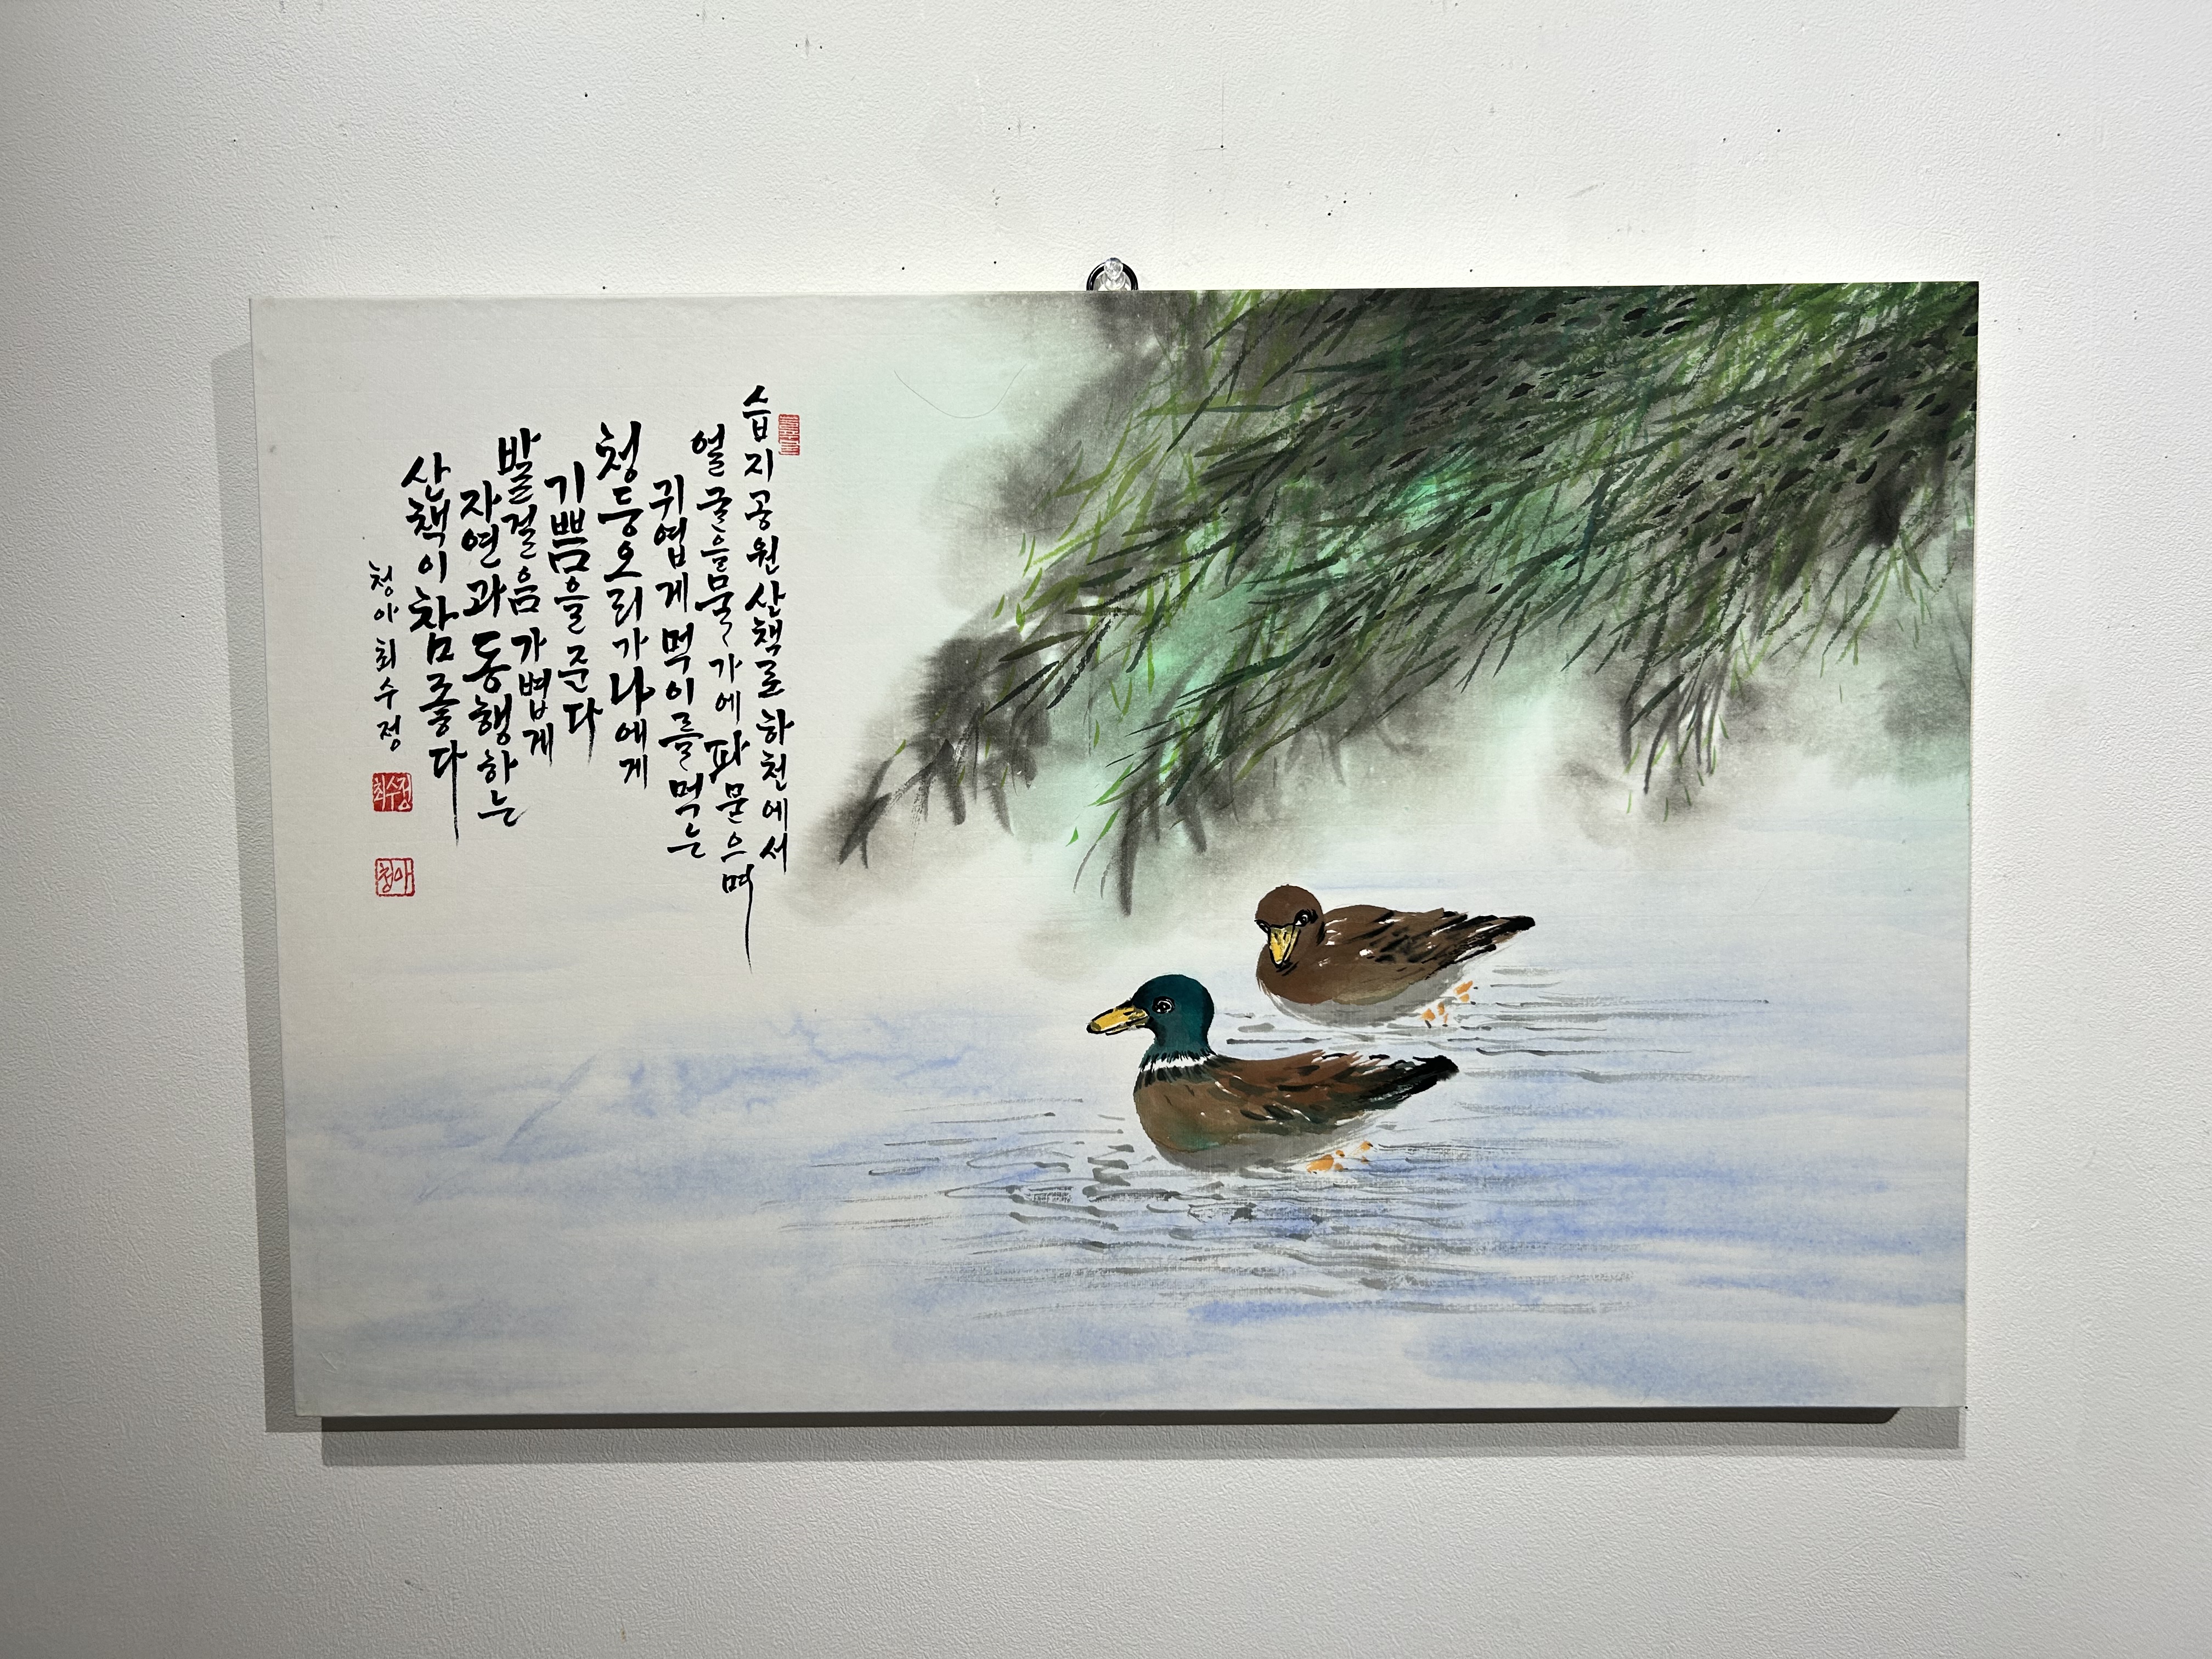 습지공원산책로하천에서
얼굴을물가에파묻으며
귀엽게먹이를먹는
청둥오리가나에게
기쁨을준다
발걸음가볍게
자연과동행하는
산책이참좋다
청아최수정
최수정
청아